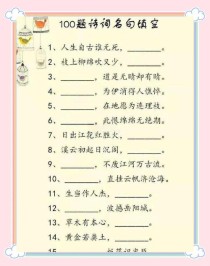 100题诗词名句填空
1、人生自古谁无死，______。
2、枝上柳绵吹又少，______。
3、______，道是无晴却有晴。
4、______，为伊消得人憔悴。
5、______，在地愿为连理枝。
6、______，此恨绵绵无绝期。
7、日出江花红胜火，______。
8、溪云初起日沉阁，______。
9、______，不废江河万古流。
10、______，直挂云帆济沧海。
11、生当作人杰，______。
12、______，波撼岳阳城。
13、草木有本心，______。
14、黄金若粪土，______。